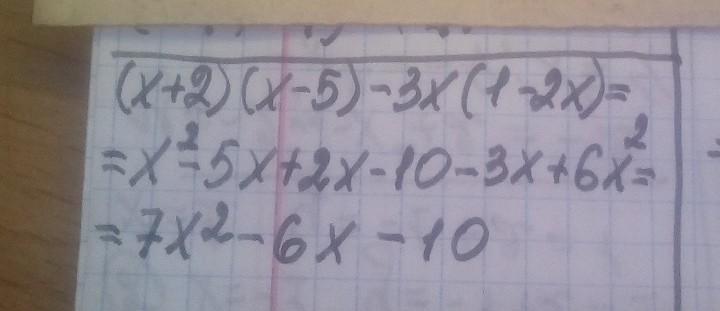 (x+2)(x-5)-3x(1-2x)=
=x²-5x+2x-10-3x+6x²=
=7x²-6x-10